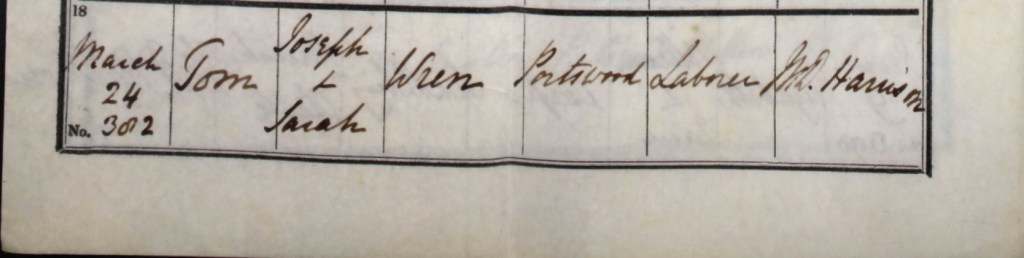 18
March
24
No. 382
Tom
Joseph
&
Sarah
Wren
Portswood
Laborer
Harrison